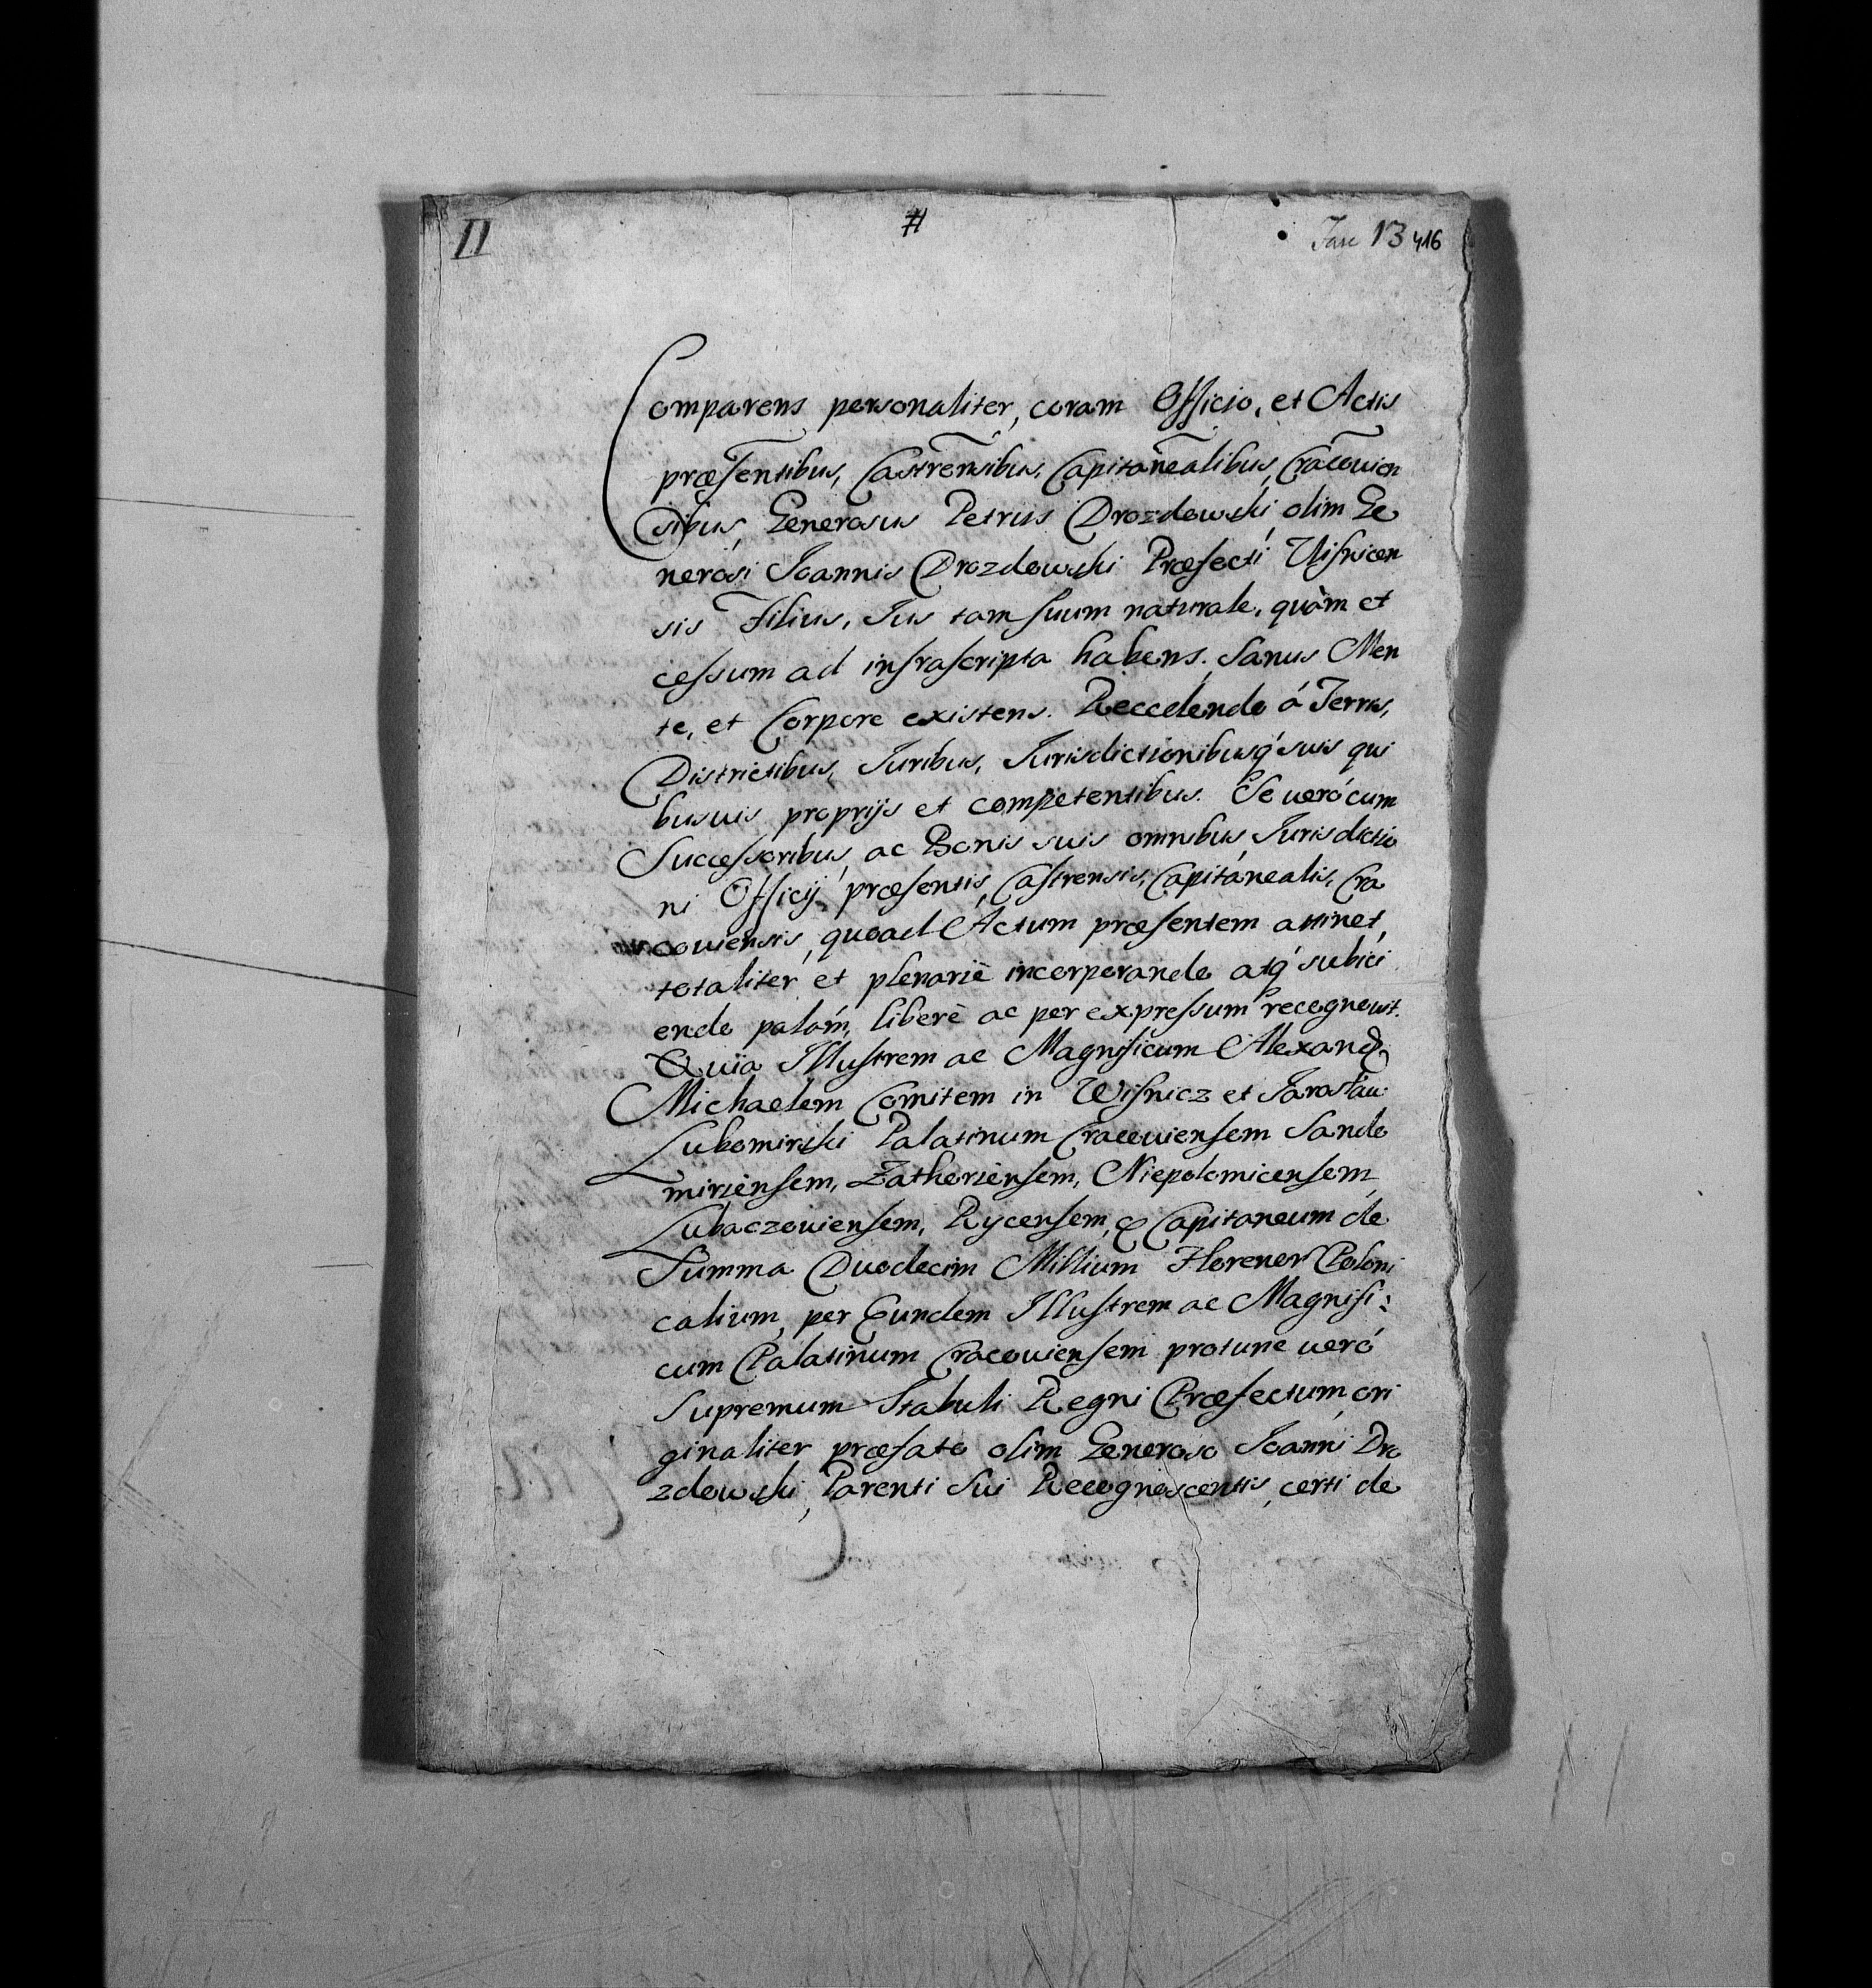 II # Fasc 13 416
Comparens personaliter, coram Officio, et Actis
præsentibus, Castrensibus, Capitanealibus, Cracouien
sibus, Generosus Petrus Drozdowski, olim Ge
nerosi Joannis Drozdowski Præfecti Wisnicen
sis Filius, Jus tam suum naturale, quàm et
cessum ad infrascripta habens. Sanus Men
te, et Corpore existens. Reccedendo á Terris,
Districtibus, Juribus, Jurisdictionibusq́ suis qui
busuis proprijs et competentibus. Se veró cum
Successoribus, ac Bonis suis omnibus Jurisdictio
ni Officij præsentis, Castrensis, Capitanealis, Cra
couiensis, quoad Actum præsentem attinet,
totaliter et plenariè incorporando atq́ subici
endo palám, liberè ac per expressum recognouit.
Quia Illustrem ac Magnificum Alexand
Michaelem Comitem in Wisnicz et Jarosłau:
Lubomirski Palatinum Cracouiensem Sando
miriensem, Zathoriensem, Niepolomicensem,
Lubaczouiensem, Rycensem, & Capitaneum de
Summa Duodecim Millium Florenor Poloni
calium, per Eundem Illustrem ac Magnifi:
cum Palatinum Cracouiensem protunc veró
Supremum Stabuli Regni Præfectum, ori
ginaliter præfato olim Generoso Joanni Dro
zdowski, Parenti Sui Recognoscentis, certi de